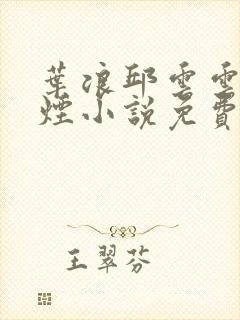 葉浪邱雲雲
煙小說免費
王翠芬